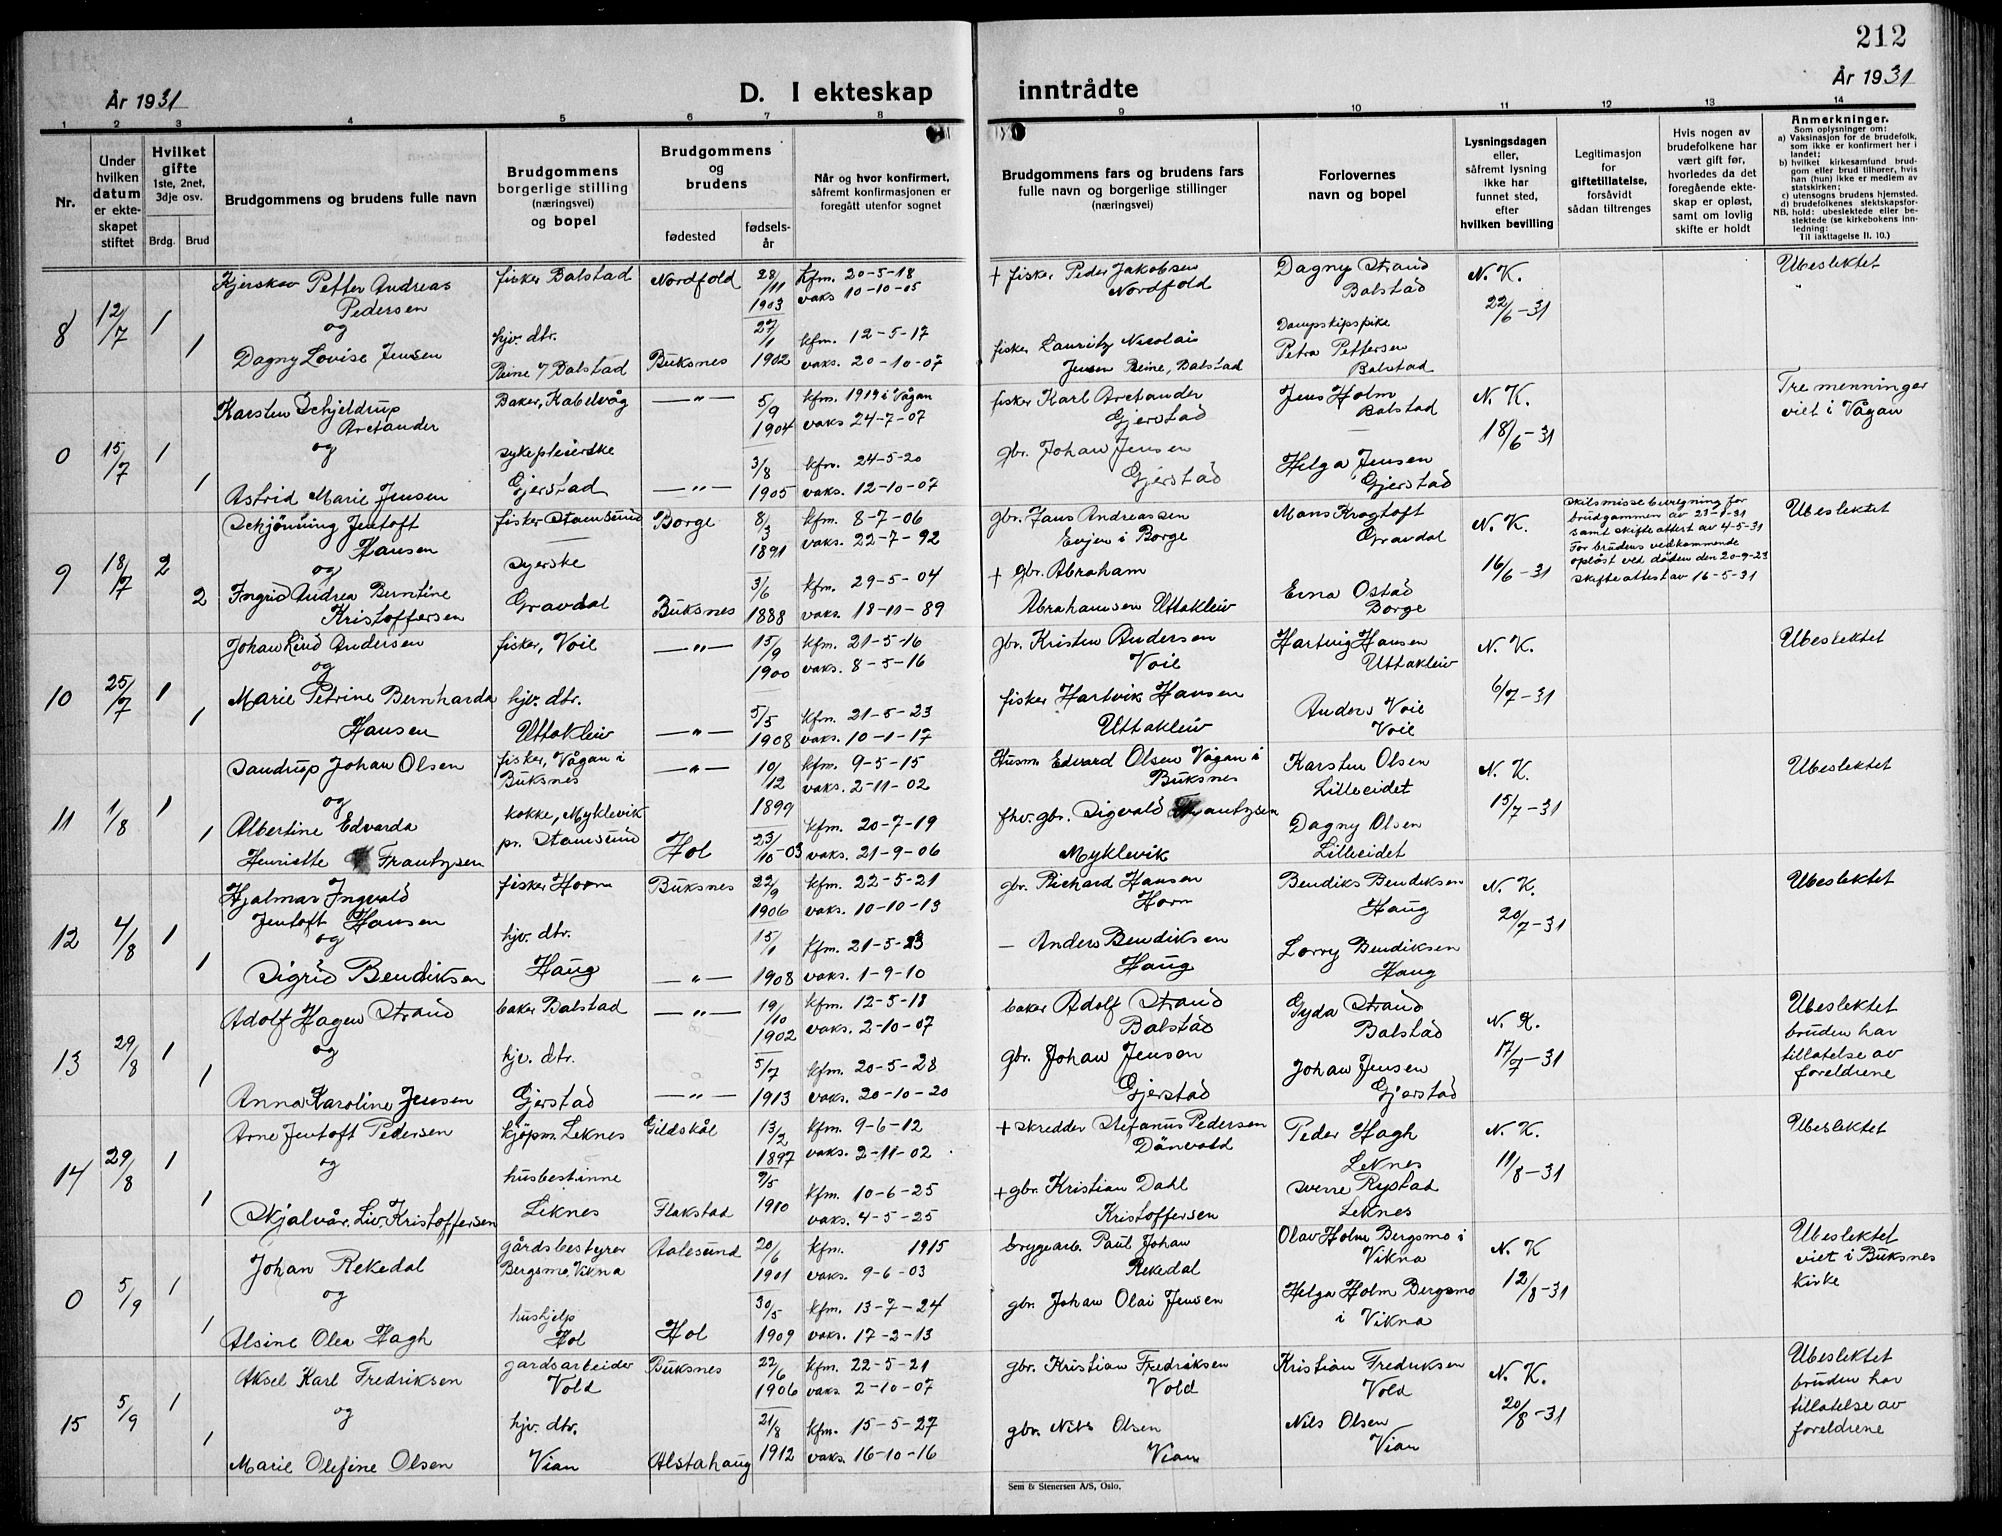 212
År 1931
D. I ekteskap
inntrådte
År 1931
1 2 3 4 5 6 7 8 9 10 11 12 13 14
Nr.
Under
hvilken
datum
er ekte-
skapet
stiftet
Hvilket
gifte
1ste, 2net,
3dje osv.
Brdg. Brud
Brudgommens og brudens fulle navn
Brudgommens
borgerlige stilling
(næringsvei)
og bopel
Brudgommens
og
brudens
fødested
fødsels-
år
Når og hvor konfirmert,
såfremt konfirmasjonen er
foregått utenfor sognet
Brudgommens fars og brudens fars
fulle navn og borgerlige stillinger
(næringsvei)
Forlovernes
navn og bopel
Lysningsdagen
eller,
såfremt lysning
ikke har
funnet sted,
efter
hvilken bevilling
Legitimasjon
for
giftetillatelse,
forsåvidt
sådan tiltrenges
Hvis nogen av
brudefolkene har
vært gift før,
hvorledes da det
foregående ekte-
skap er opløst,
samt om lovlig
skifte er holdt
Anmerkninger.
Som oplysninger om:
a) Vaksinasjon for de brudefolk,
som ikke er konfirmert her i
landet;
b) hvilket kirkesamfund brud-
gom eller brud tilhører, hvis
han (hun) ikke er medlem av
statskirken;
c) utensogns brudens hjemsted.
d) brudefolkenes slektskapsfor-
NB. hold: ubeslektede eller be-
slektede (se kirkebokens inn-
ledning:
Til iakttagelse II. 10.)
8 12/7 1 1
Petter Andreas
Pedersen
og
Dagny Lovise Jensen
fisker Balstad
hjv. dtr.
Reine / Balstad
Nordfold
Buksnes
28/11
1903
27/1
1902
kfm. 20-5-18
vaks 10-10-05
kfm. 12-5-17
vaks. 20-10-07
+ fisker Peder Jakobsen
Nordfold
fisker Lauritz Nicolai
Jensen Reine, Balstad
Dagny Strand
Balstad
Dampskipspike
Petra Pettersen
Balstad
N. K.
22/6-31
Ubeslektet
"
0 15/7 1 1
Karsten Schjeldrup
Arctander
og
Astrid Marie Jensen
Baker, Kabelvåg
sykepleierske
Gjerstad
— " —
— " —
5/9
1904
3/8
1905
kfm. 1919 i Vågan
vaks 24-7-07
kfm. 24-5-20
vaks. 12-10-07
fisker Karl Arctander
Gjerstad
gbr. Johan Jensen
Gjerstad
Jens Holm
Balstad
Helga Jensen
Gjerstad
N. K.
18/6-31
Tremenninger
viet i Vågan
9 18/7 2 2
Schjönning Jentoft
Hansen
og
Ingrid Andrea Berntine
Kristoffersen
fisker Stamsund
syerske
Gravdal
Borge
Buksnes
8/3
1891
3/6
1888
kfm. 8-7-06
vaks. 22-7-92
kfm. 29-5-04
vaks. 18-11-89
gbr. Hans Andreassen
Evjen i Borge
+ gbr. Abraham
Abrahamsen Uttakleiv
Mons Krogtoft
Gravdal
Erna Ostad
Borge
N. K.
16/6-31
skilsmissebevegning for
brudgommen av 23-1-31
samt skifteattest av 4-5-31
For brudens vedkommende
opløst ved døden den 20-9-23
skifteattest av 16-5-31
Ubeslektet
10 25/7 1 1
Johan Lind Andersen
og
Marie Petrine Bernharda
Hansen
fisker, Voie
hjv. dtr.
Uttakleiv
— " —
— " —
15/9
1900
5/5
1908
kfm. 21-5-16
vaks. 8-5-16
kfm. 21-5-23
vaks. 10-1-17
gbr. Kristen Andersen
Voie
fisker Hartvik Hansen
Uttakleiv
Hartvig Hansen
Uttakleiv
Anders Voie
Voie
N. K.
6/7-31
Ubeslektet
11 1/8 1 1
Sandrup Johan Olsen
og
Albertine Edvarda
Henriette Frantzsen
fisker, Vågan i
Buksnes
kokke, Myklevik
pr. Stamsund
— " —
Hol
10/12
1899
23/10-03
kfm. 9-5-15
vaks. 2-11-02
kfm. 20-7-19
vaks. 21-9-06
Husm Edvard Olsen Vågan i
Buksnes
fhv. gbr. Sigvald Frantzsen
Myklevik
Karsten Olsen
Lilleeidet
Dagny Olsen
Lilleeidet
N. K.
15/7-31
Ubeslektet
12 4/8 1 1
Hjalmar Ingvald
Jentoft Hansen
og
Sigrid Bendiksen
fisker Horn
hjv. dtr.
Haug
Buksnes
— " —
22/9
1906
15/1
1908
kfm. 22-5-21
vaks. 10-10-13
kfm. 21-5-23
vaks. 1-9-10
gbr. Richard Hansen
Horn
— Anders Bendiksen
Haug
Bendiks Bendiksen
Haug
Lorry Bendiksen
Haug
N. K.
20/7-31
Ubeslektet
13 29/8 1 1
Adolf Hagen Strand
og
Anna Karoline Jensen
baker Balstad
hjv. dtr.
Gjerstad
— " —
— " —
19/10
1902
5/7
1913
kfm. 12-5-18
vaks. 2-10-07
kfm. 20-5-28
vaks. 20-10-20
baker Adolf Strand
Balstad
gbr. Johan Jensen
Gjerstad
Gyda Strand
Balstad
Johan Jensen
Gjerstad
N. K.
17/7-31
Ubeslektet
bruden har
tillatelse av
foreldrene
14 29/8 1 1
Arne Jentoft Pedersen
og
Njalvår Liv Kristoffersen
kjöpm. Leknes
husbestinne
Leknes
Gildskål
Flakstad
13/2
1897
9/5
1910
kfm. 9-6-12
vaks. 2-11-02
kfm. 10-6-25
vaks. 4-5-25
+ skredder Stefanus Pedersen
Dönvold
+ gbr. Kristian Dahl
Kristoffersen
Peder Hagh
Leknes
Sverre Rystad
Leknes
N. K.
11/8-31
Ubeslektet
0 5/9 1 1
Johan Rekedal
og
Alsine Olea Hagh
gårdsbestyrer
Bergsmo, Vikna
hushjelp
Hol
Aalesund
Hol
20/6
1901
30/5
1909
kfm. 1915
vaks. 9-6-03
kfm. 13-7-24
vaks. 17-2-13
bryggearb. Paul Johan
Rekedal
gbr. Johan Olai Jensen
Olav Holm Bergsmo i
Vikna
Helga Holm Bergsmo
i Vikna
N. K
12/8-31
Ubeslektet
viet i Buksnes
kirke
15 5/9 1 1
Aksel Karl Fredriksen
og
Marie Olefine Olsen
gardsarbeider
Vold
hjv. dtr.
Vian
Buksnes
Alstahaug
22/6
1906
21/8
1912
kfm. 22-5-21
vaks 2-10-07
kfm. 15-5-27
vaks. 16-10-16
gbr. Kristian Fredriksen
Vold
gbr. Nils Olsen
Vian
Kristian Fredriksen
Vold
Nils Olsen
Vian
N. K.
20/8-31
Ubeslektet
bruden har
tillatelse av
foreldrene
Sem & Stenersen A/S, Oslo.